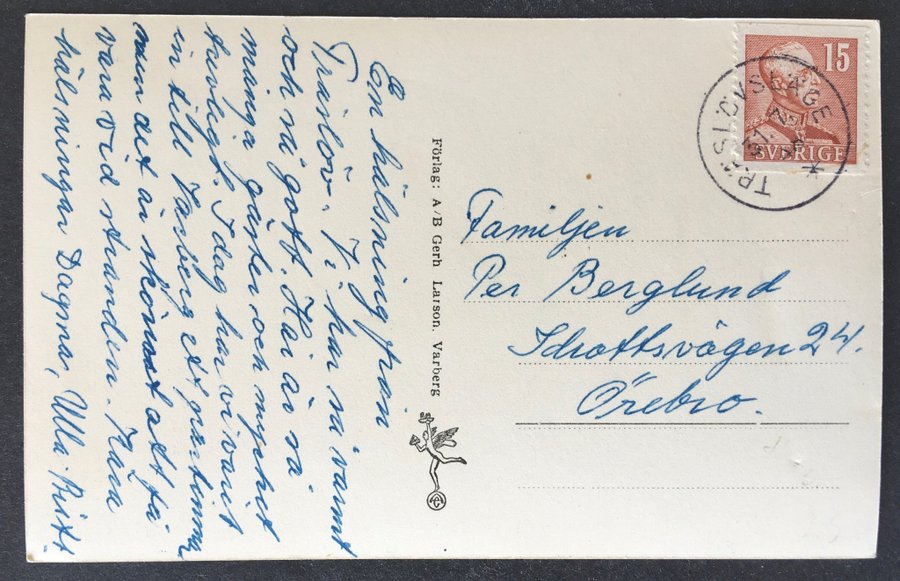 En hälsning från
Träslöv. Vi har så varmt
och så gott. Här är så
många gäster och mycket
trevligt. I dag har vi varit
in till Varberg ett par timmar
men det är skönast att få
vara vid stranden. Kära
hälsningar Dagmar, Ulla-Britt
Förlag: A/B Gerh Larson, Varberg
15
SVERIGE
TRÄSLÖVSLÄGE
Familjen
Per Berglund
Idrottsvägen 24.
Örebro.